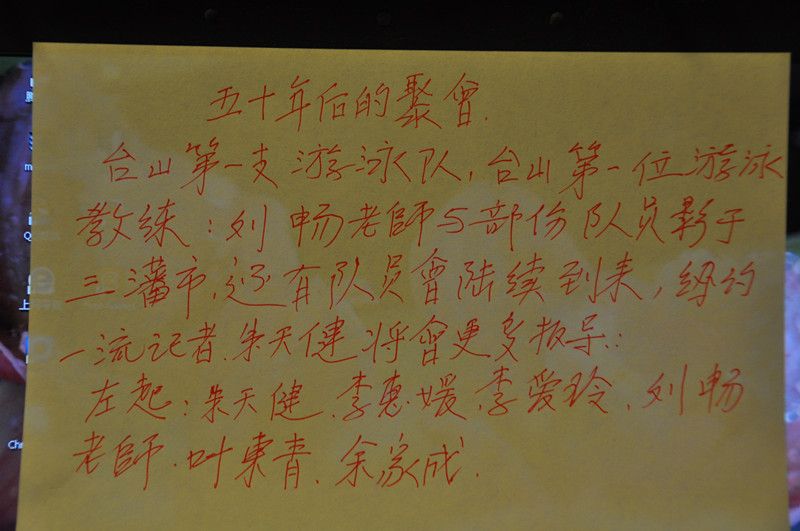 五十年后的聚會.
台山第一支游泳队,台山第一位游泳
教练:刘畅老師与部份队员影于
三藩市,还有队员會陆续到来,纽约
一流记者.朱天健将會更多报导:
左起:朱天健.李惠媛.李爱玲.刘畅
老師.叶東青.余家成.